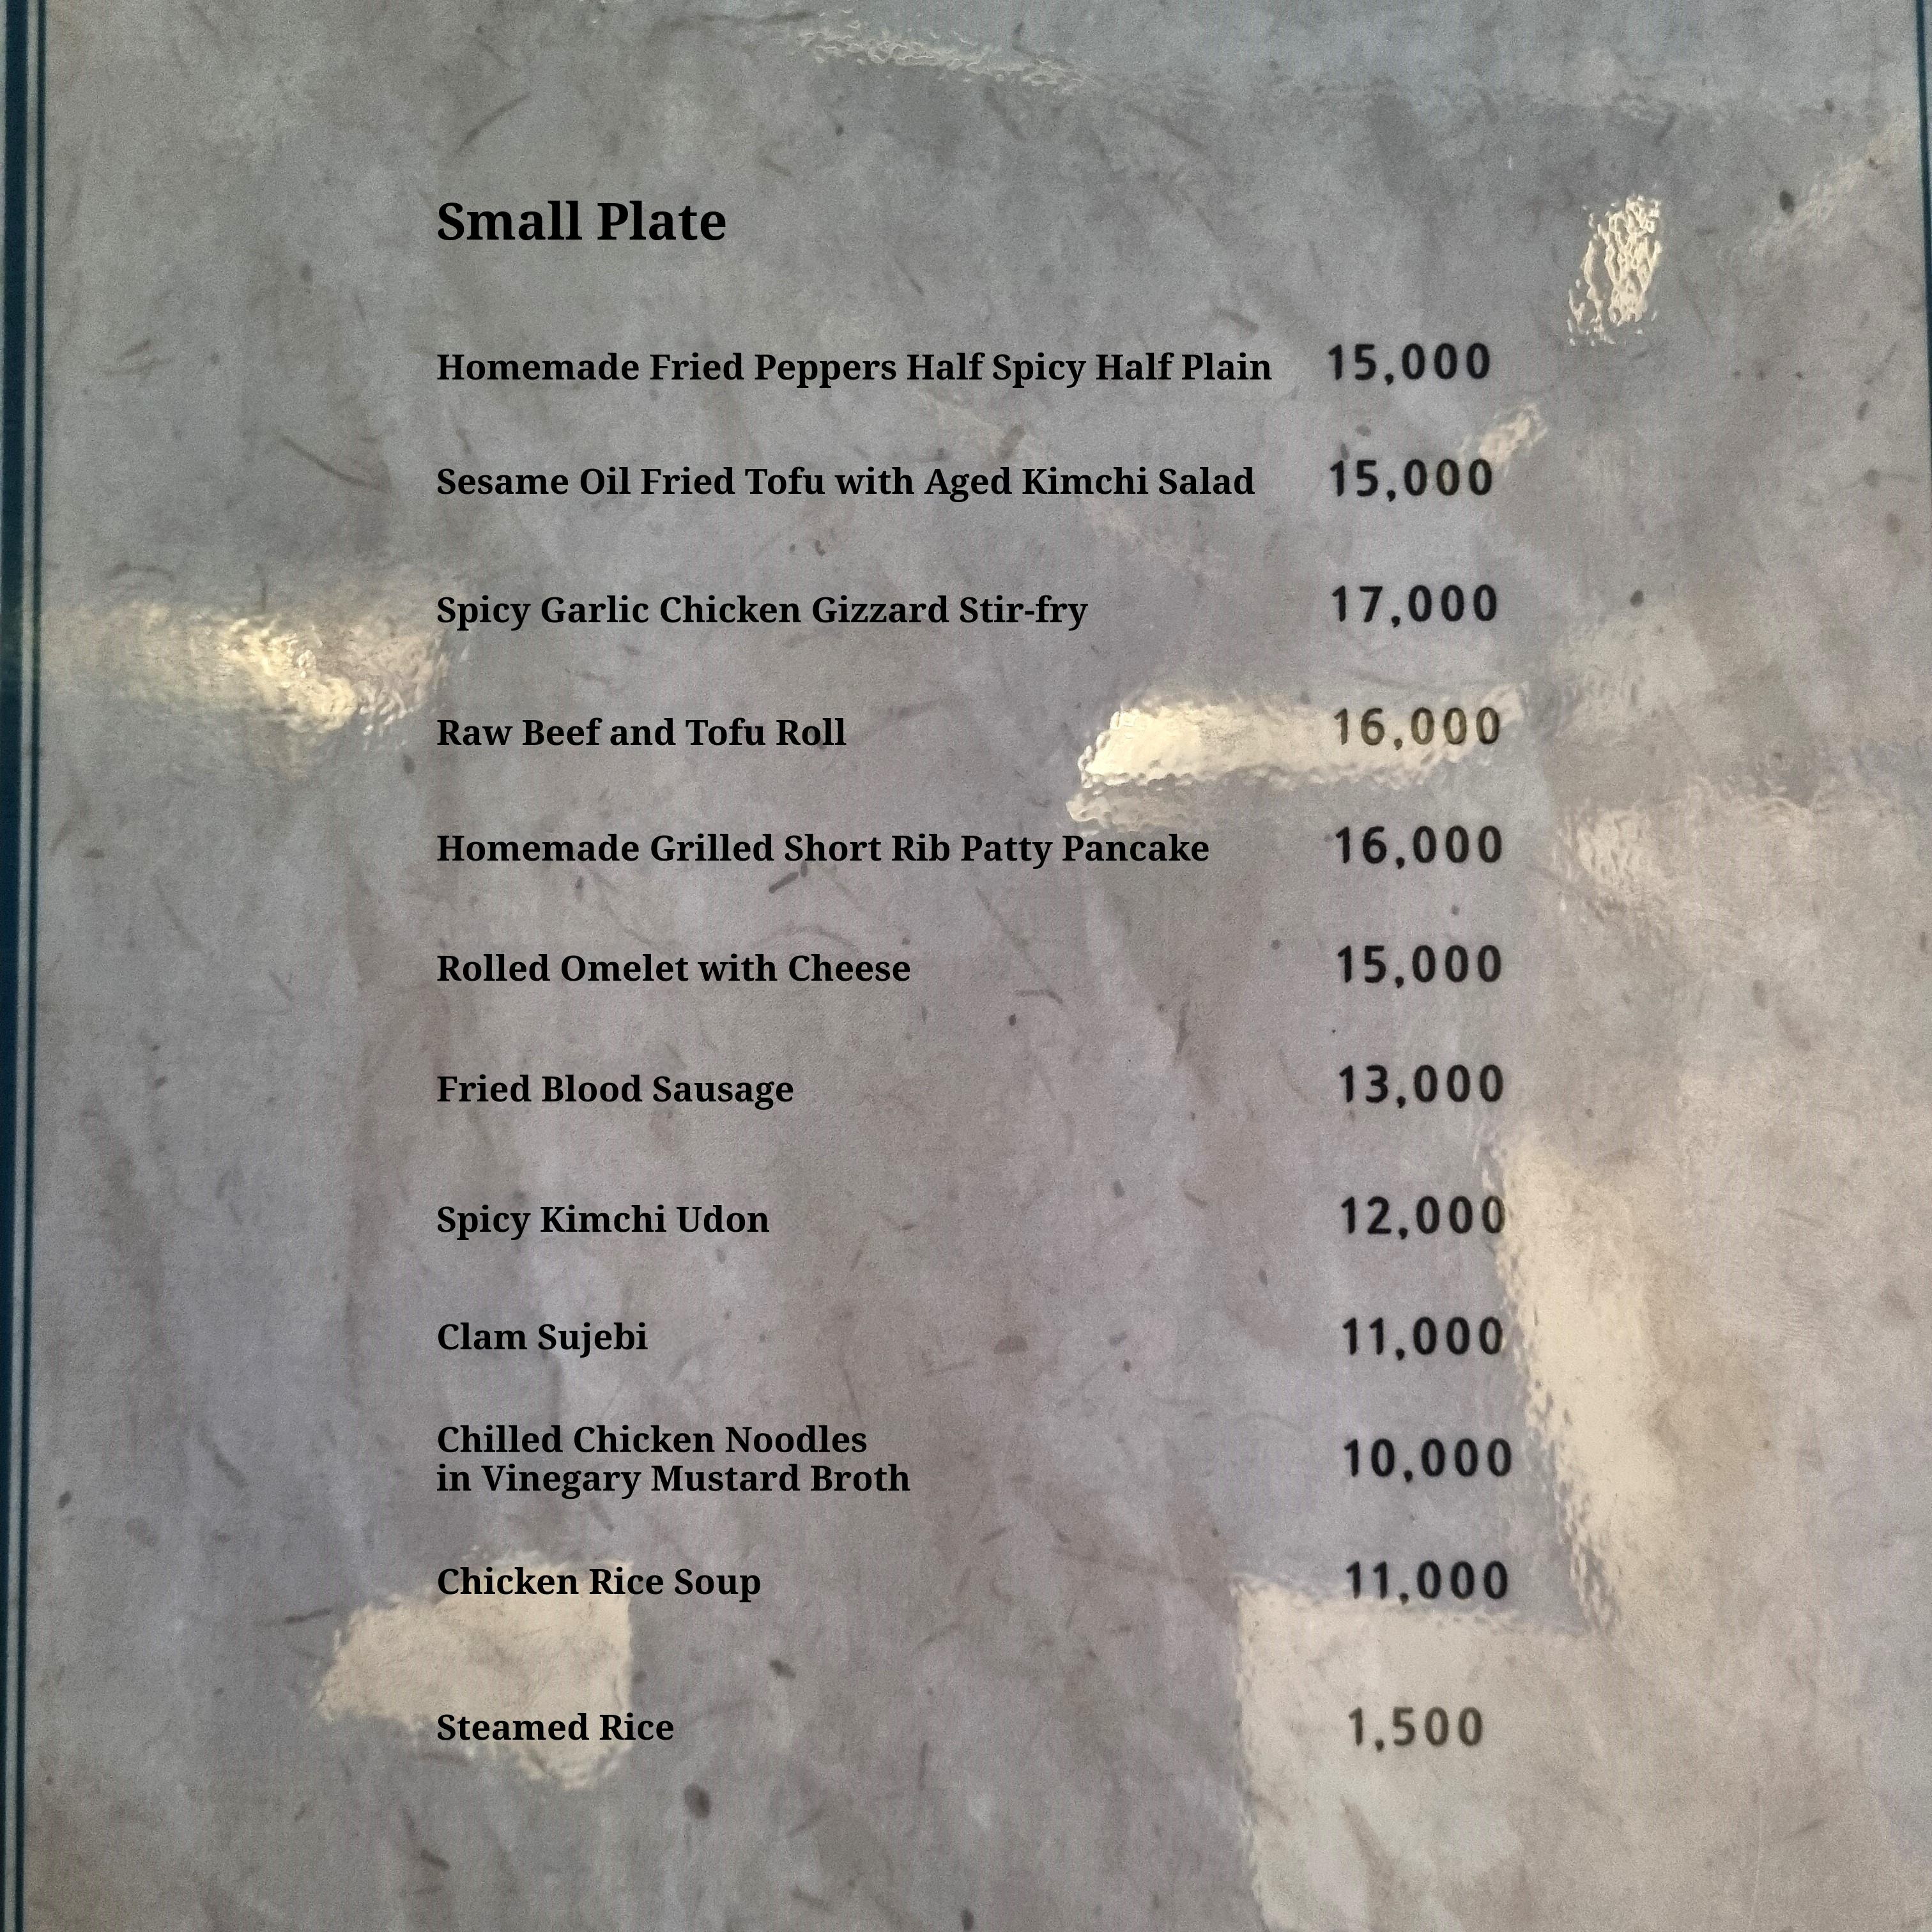 Small Plate
Homemade Fried Peppers Half Spicy Half Plain 15,000
Sesame Oil Fried Tofu with Aged Kimchi Salad 15,000
Spicy Garlic Chicken Gizzard Stir-fry 17,000
Raw Beef and Tofu Roll 16,000
Homemade Grilled Short Rib Patty Pancake 16,000
Rolled Omelet with Cheese 15,000
Fried Blood Sausage 13,000
Spicy Kimchi Udon 12,000
Clam Sujebi 11,000
Chilled Chicken Noodles
in Vinegary Mustard Broth 10,000
Chicken Rice Soup 11,000
Steamed Rice 1,500